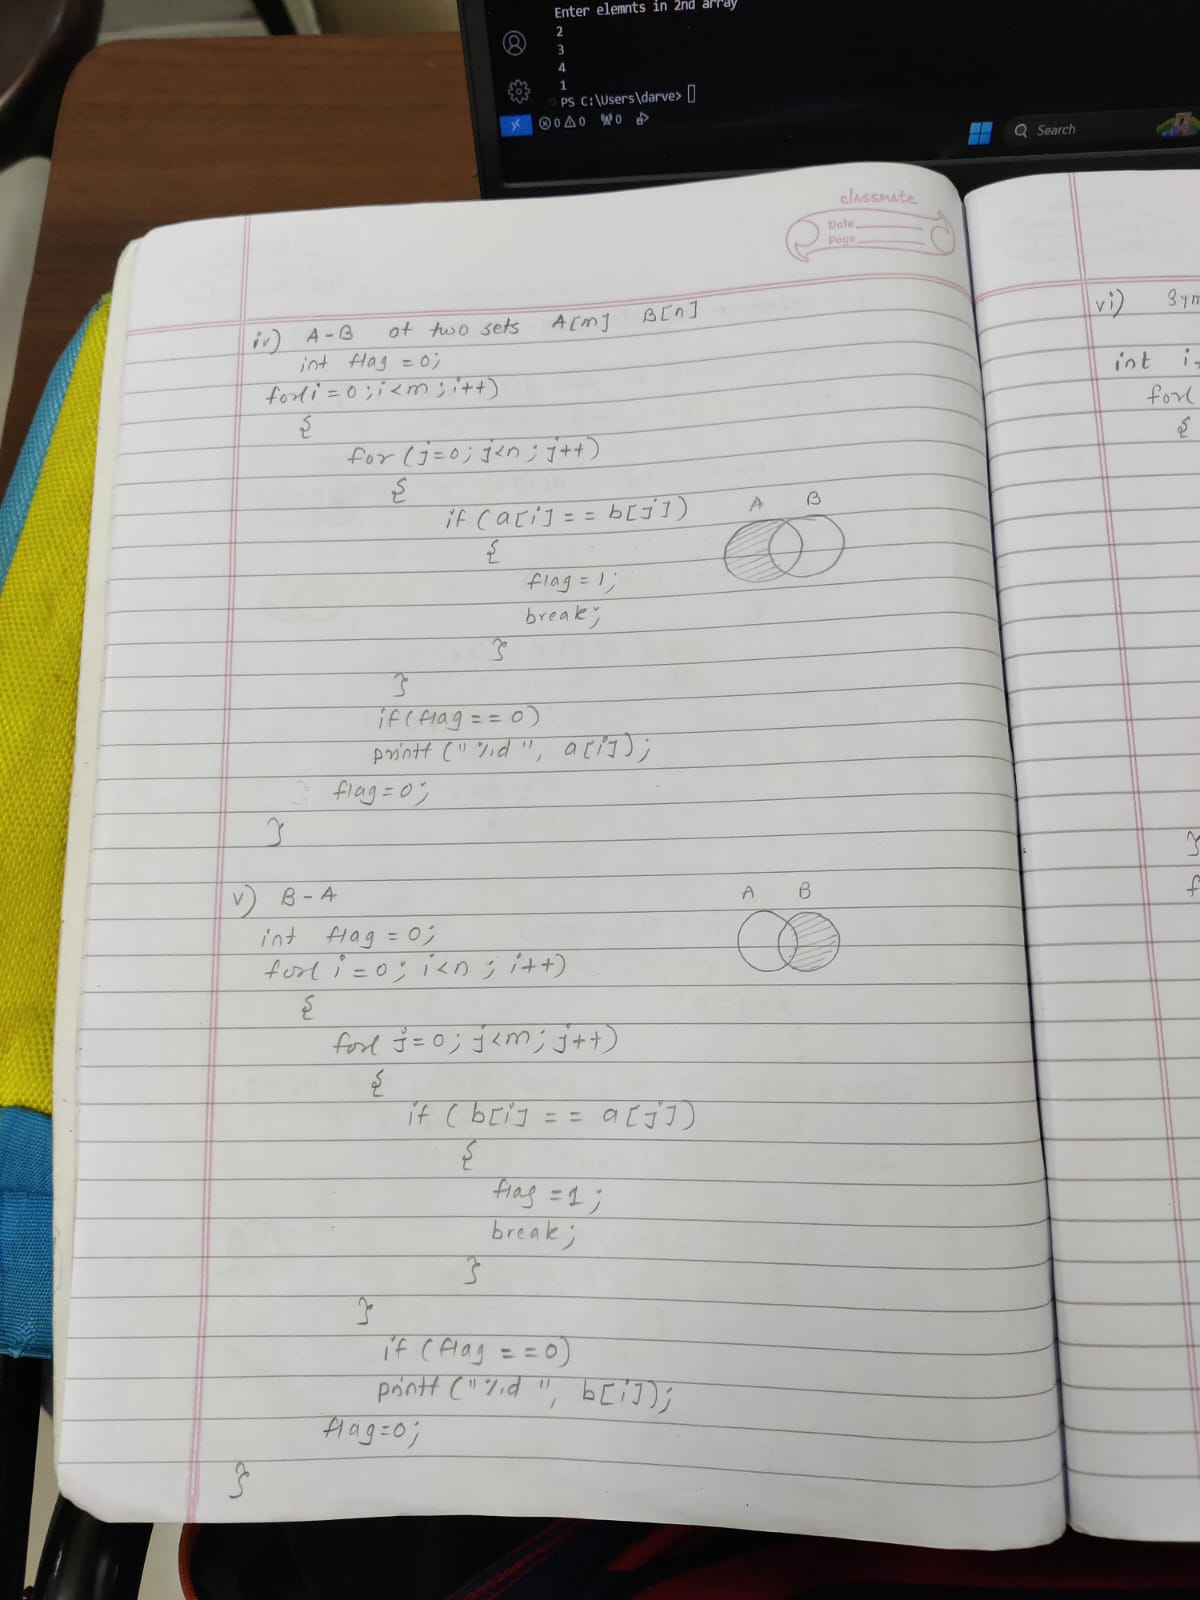 Enter elemnts in 2nd array
2
3
4
1
PS C:\Users\darve>
0 0 0
Search
classmate
Date
Page
iv) A-B of two sets A[m] B[n]
int flag = 0;
for(i=0;i<m;i++)
{
for (j=0; j<n; j++)
{
if (a[i] == b[j])
{
flag = 1;
break;
}
}
if(flag == 0)
printf ("%d", a[i]);
flag=0;
}
A B
v) B-A
int flag = 0;
for( i=0; i<n; i++)
{
for( j=0; j<m; j++)
{
if ( b[i] == a[j])
{
flag =1;
break;
}
}
if (flag ==0)
printf ("%d", b[i]);
flag=0;
}
A B
vi) Sym
int i
for(
{
}
f